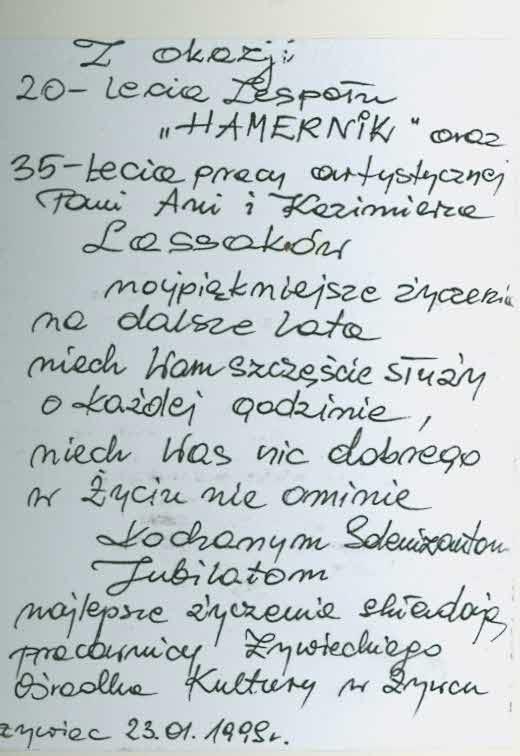 Z okazji
20-lecia Zespołu
„HAMERNIK" oraz
35-lecia pracy artystycznej
Pani Ani i Kazimierza
Lassaków
najpiękniejsze życzenia
na dalsze lata
niech Wam szczęście służy
o każdej godzinie,
niech Was nic dobrego
w Życiu nie ominie
Kochanym Solenizantom
Jubilatom
najlepsze życzenia składają
pracownicy Żywieckiego
Ośrodka Kultury w Żywcu
żywiec 23.01.1999r.